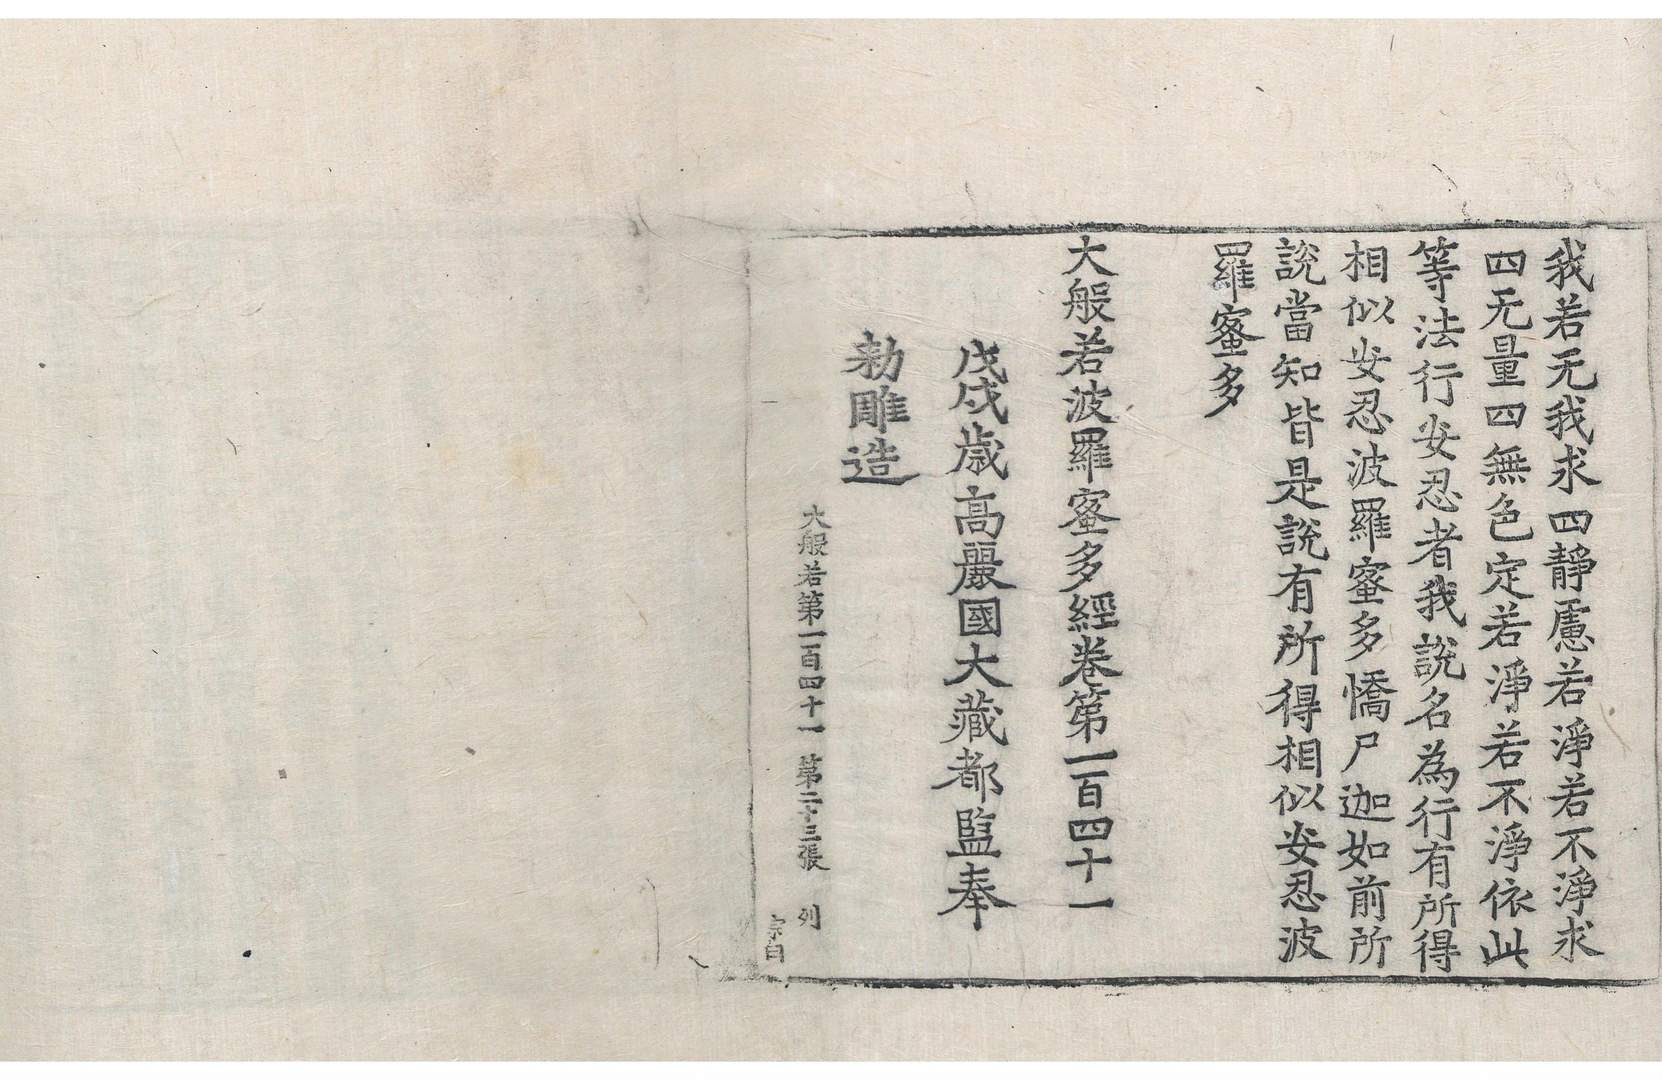 我若无我求四靜慮若淨若不淨求
四无量四無色定若淨若不淨依此
等法行安忍者我說名為行有所得
相似安忍波羅蜜多憍尸迦如前所
說當知皆是說有所得相似安忍波
羅蜜多
大般若波羅蜜多經卷第一百四十一
戊戌歲高麗國大藏都監奉
勑雕造
大般若第一百四十一 第二十三張 列
宗白